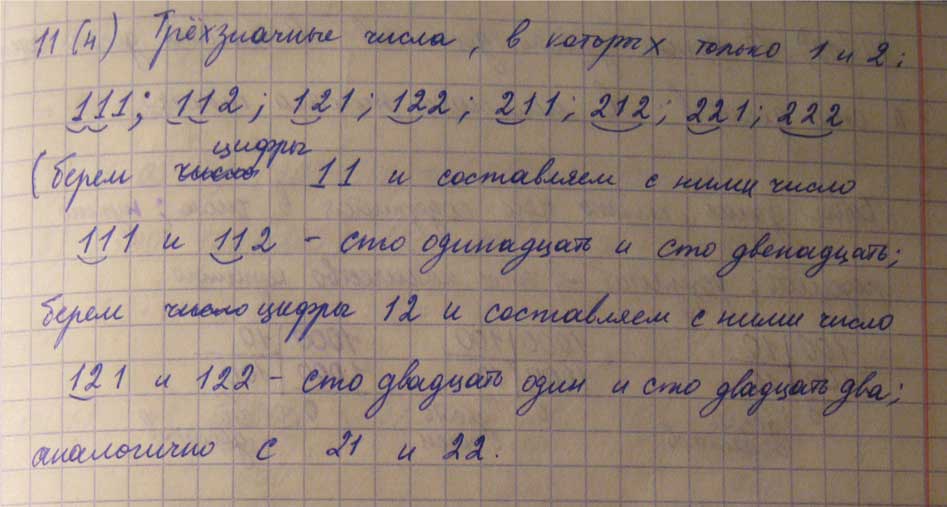 11(4) Трёхзначные числа, в которых только 1 и 2:
111; 112; 121; 122; 211; 212; 221; 222
(берем число цифры 11 и составляем с ними число
111 и 112 - сто одинадцать и сто двенадцать;
берем число цифры 12 и составляем с ними число
121 и 122 - сто двадцать один и сто двадцать два;
аналогично с 21 и 22.